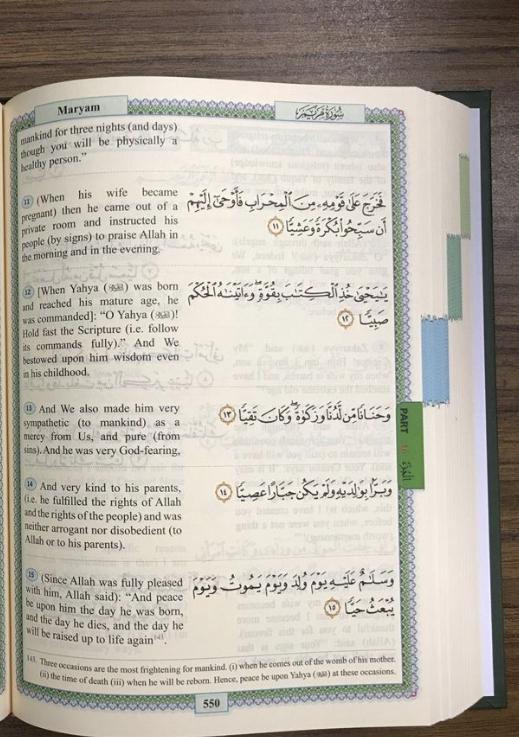 Maryam
سُورَةُ مَرْيَمَ
mankind for three nights (and days)
though you will be physically a
healthy person."
11 (When his wife became
pregnant) then he came out of a
private room and instructed his
people (by signs) to praise Allah in
the morning and in the evening.
فَخَرَجَ عَلَىٰ قَوْمِهِۦ مِنَ ٱلْمِحْرَابِ فَأَوْحَىٰٓ إِلَيْهِمْ
أَن سَبِّحُوا۟ بُكْرَةً وَعَشِيًّا ١١
12 [When Yahya (ﷺ) was born
and reached his mature age, he
was commanded]: "O Yahya (ﷺ)!
Hold fast the Scripture (i.e. follow
its commands fully)." And We
bestowed upon him wisdom even
in his childhood.
يَٰيَحْيَىٰ خُذِ ٱلْكِتَٰبَ بِقُوَّةٍ ۖ وَءَاتَيْنَٰهُ ٱلْحُكْمَ
صَبِيًّا ١٢
13 And We also made him very
sympathetic (to mankind) as a
mercy from Us, and pure (from
sins). And he was very God-fearing,
وَحَنَانًا مِّن لَّدُنَّا وَزَكَوٰةً ۖ وَكَانَ تَقِيًّا ١٣
14 And very kind to his parents,
(i.e. he fulfilled the rights of Allah
and the rights of the people) and was
neither arrogant nor disobedient (to
Allah or to his parents).
وَبَرًّۢا بِوَٰلِدَيْهِ وَلَمْ يَكُن جَبَّارًا عَصِيًّا ١٤
15 (Since Allah was fully pleased
with him, Allah said): "And peace
be upon him the day he was born,
and the day he dies, and the day he
will be raised up to life again⁽¹⁴³⁾.
وَسَلَٰمٌ عَلَيْهِ يَوْمَ وُلِدَ وَيَوْمَ يَمُوتُ وَيَوْمَ
يُبْعَثُ حَيًّا ١٥
143. Three occasions are the most frightening for mankind. (i) when he comes out of the womb of his mother.
(ii) the time of death (iii) when he will be reborn. Hence, peace be upon Yahya (ﷺ) at these occasions.
550
PART 16 الجُزْءُ